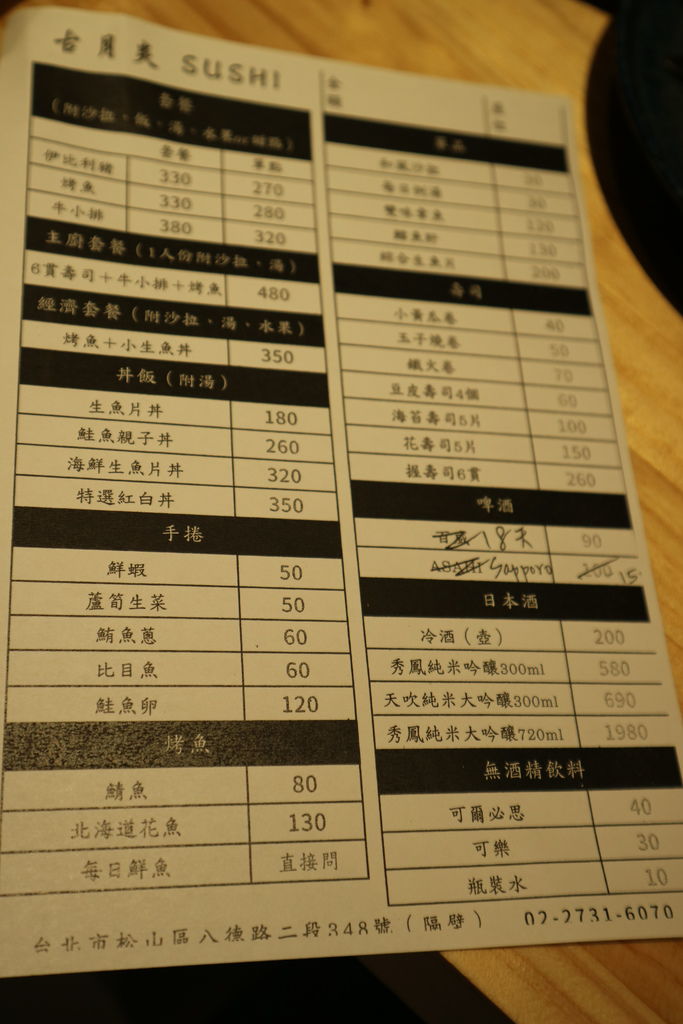 古月爽 SUSHI
套餐
(附沙拉、飯、湯、水果or甜點)
套餐 單點
伊比利豬 330 270
烤魚 330 280
牛小排 380 320
主廚套餐(1人份附沙拉、湯)
6貫壽司+牛小排+烤魚 480
經濟套餐(附沙拉、湯、水果)
烤魚+小生魚丼 350
丼飯(附湯)
生魚片丼 180
鮭魚親子丼 260
海鮮生魚片丼 320
特選紅白丼 350
手捲
鮮蝦 50
蘆筍生菜 50
鮪魚蔥 60
比目魚 60
鮭魚卵 120
烤魚
鯖魚 80
北海道花魚 130
每日鮮魚 直接問
單品
和風沙拉
120
130
綜合生魚片 200
壽司
小黃瓜卷 40
玉子燒卷 50
鐵火卷 70
豆皮壽司4個 60
海苔壽司5片 100
花壽司5片 150
握壽司6貫 260
啤酒
18天 90
ASAHI Sapporo 100 15
日本酒
冷酒(壺) 200
秀鳳純米吟釀300ml 580
天吹純米大吟釀300ml 690
秀鳳純米大吟釀720ml 1980
無酒精飲料
可爾必思 40
可樂 30
瓶裝水 10
台北市松山區八德路二段348號(隔壁) 02-2731-6070